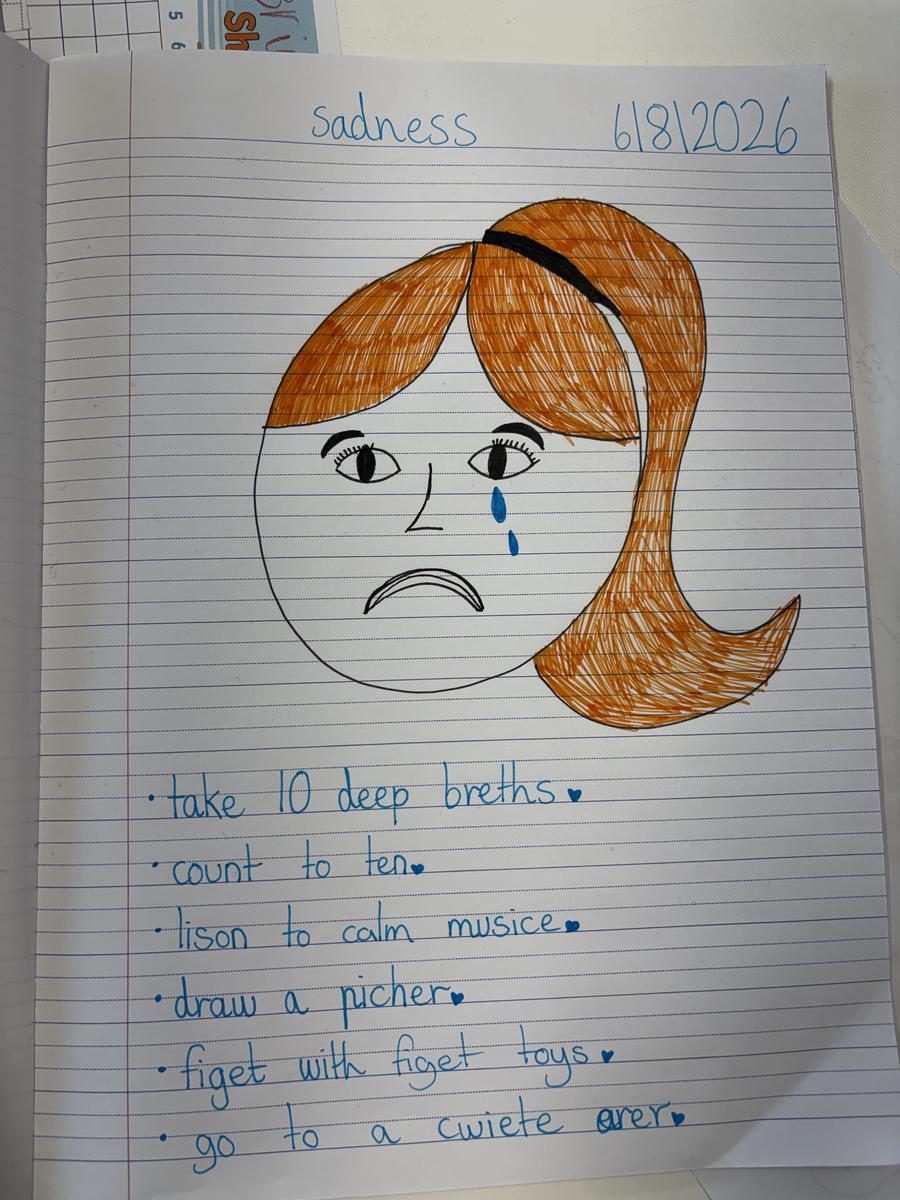 5
6
Sh
sadness 6/8/2026
• take 10 deep breths♥
• count to ten♥
• lison to calm musice♥
• draw a picher♥
• figet with figet toys♥
• go to a cwiete arer♥